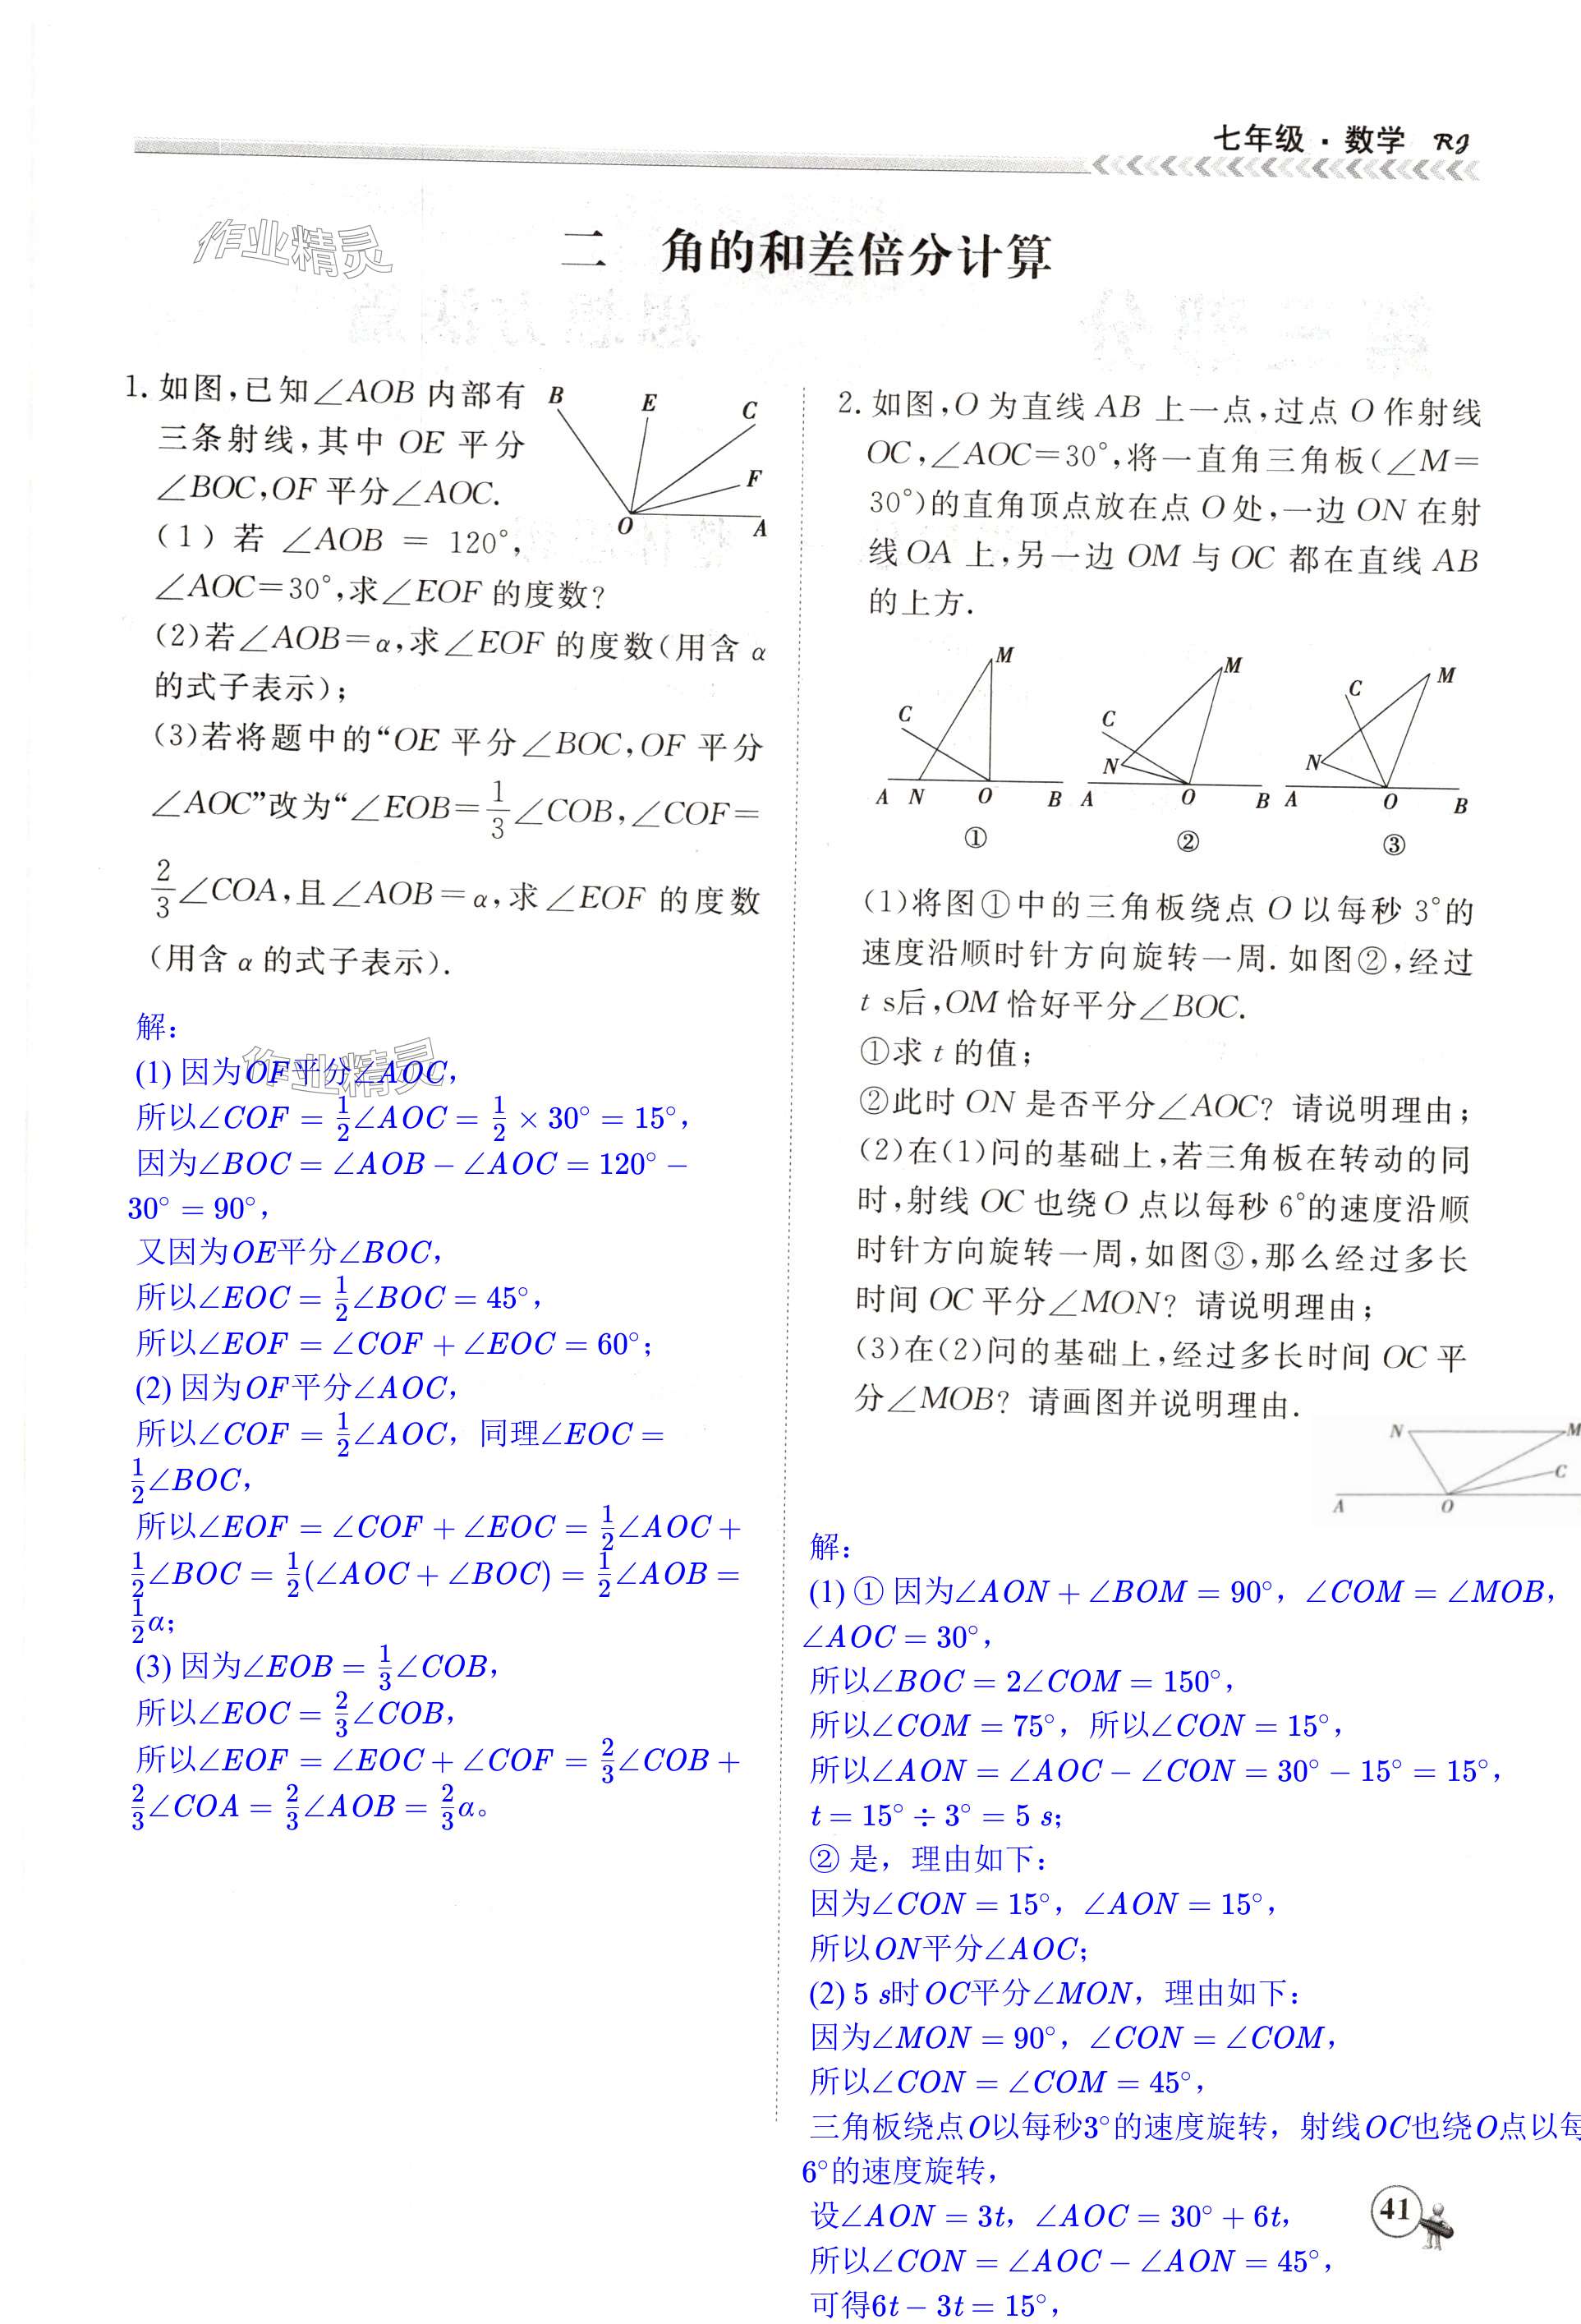 七年级·数学 RJ
作业精灵
二 角的和差倍分计算
1. 如图,已知∠AOB 内部有
三条射线,其中 OE 平分
∠BOC,OF 平分∠AOC.
(1) 若 ∠AOB = 120°,
∠AOC=30°,求∠EOF 的度数?
(2)若∠AOB=α,求∠EOF 的度数(用含 α
的式子表示);
(3)若将题中的“OE 平分∠BOC,OF 平分
∠AOC”改为“∠EOB=1/3∠COB,∠COF=
2/3∠COA,且∠AOB=α,求∠EOF 的度数
(用含 α 的式子表示).
B E C F O A
解:
作业精灵
(1) 因为OF平分∠AOC,
所以∠COF = 1/2∠AOC = 1/2 × 30° = 15°,
因为∠BOC = ∠AOB − ∠AOC = 120° −
30° = 90°,
又因为OE平分∠BOC,
所以∠EOC = 1/2∠BOC = 45°,
所以∠EOF = ∠COF + ∠EOC = 60°;
(2) 因为OF平分∠AOC,
所以∠COF = 1/2∠AOC, 同理∠EOC =
1/2∠BOC,
所以∠EOF = ∠COF + ∠EOC = 1/2∠AOC +
1/2∠BOC = 1/2(∠AOC + ∠BOC) = 1/2∠AOB =
1/2α;
(3) 因为∠EOB = 1/3∠COB,
所以∠EOC = 2/3∠COB,
所以∠EOF = ∠EOC + ∠COF = 2/3∠COB +
2/3∠COA = 2/3∠AOB = 2/3α。
2. 如图,O 为直线 AB 上一点,过点 O 作射线
OC,∠AOC=30°,将一直角三角板(∠M=
30°)的直角顶点放在点 O 处,一边 ON 在射
线 OA 上,另一边 OM 与 OC 都在直线 AB
的上方.
M C A N O B
①
M C N A O B
②
M C N A O B
③
(1)将图①中的三角板绕点 O 以每秒 3°的
速度沿顺时针方向旋转一周. 如图②,经过
t s后,OM 恰好平分∠BOC.
①求 t 的值;
②此时 ON 是否平分∠AOC? 请说明理由;
(2)在(1)问的基础上,若三角板在转动的同
时,射线 OC 也绕 O 点以每秒 6°的速度沿顺
时针方向旋转一周,如图③,那么经过多长
时间 OC 平分∠MON? 请说明理由;
(3)在(2)问的基础上,经过多长时间 OC 平
分∠MOB? 请画图并说明理由.
N M C A O
解:
(1) ① 因为∠AON + ∠BOM = 90°, ∠COM = ∠MOB,
∠AOC = 30°,
所以∠BOC = 2∠COM = 150°,
所以∠COM = 75°, 所以∠CON = 15°,
所以∠AON = ∠AOC − ∠CON = 30° − 15° = 15°,
t = 15° ÷ 3° = 5 s;
② 是, 理由如下:
因为∠CON = 15°, ∠AON = 15°,
所以ON平分∠AOC;
(2) 5 s时OC平分∠MON, 理由如下:
因为∠MON = 90°, ∠CON = ∠COM,
所以∠CON = ∠COM = 45°,
三角板绕点O以每秒3°的速度旋转, 射线OC也绕O点以每
6°的速度旋转,
设∠AON = 3t, ∠AOC = 30° + 6t,
所以∠CON = ∠AOC − ∠AON = 45°,
可得6t − 3t = 15°,
41